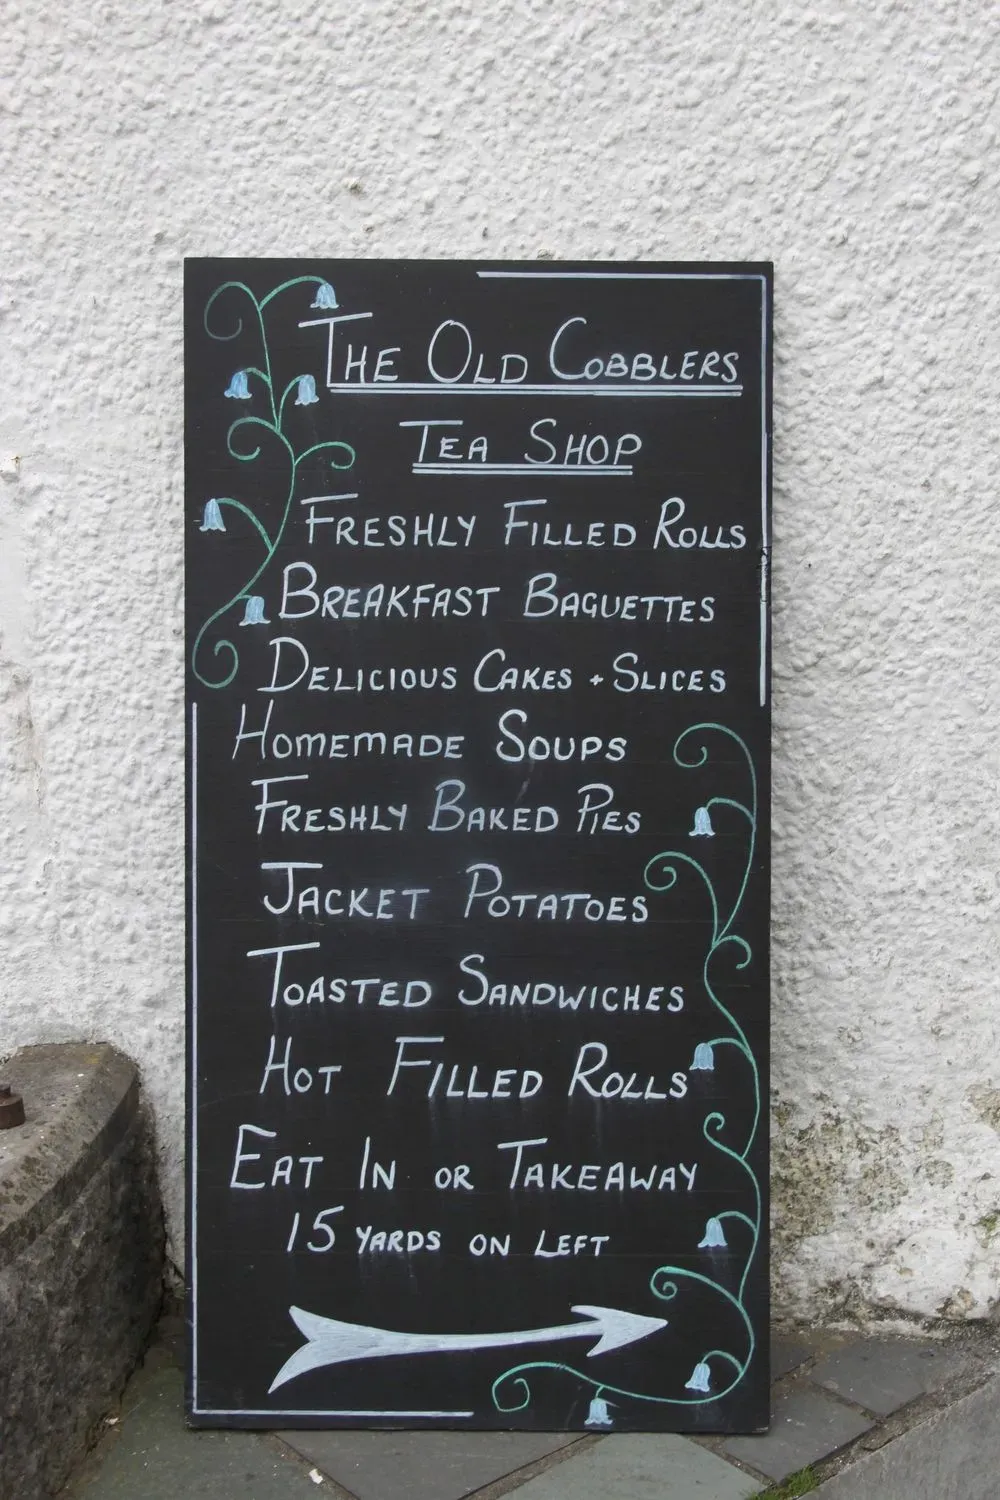 The Old Cobblers
Tea Shop
Freshly Filled Rolls
Breakfast Baguettes
Delicious Cakes + Slices
Homemade Soups
Freshly Baked Pies
Jacket Potatoes
Toasted Sandwiches
Hot Filled Rolls
Eat In or Takeaway
15 yards on left